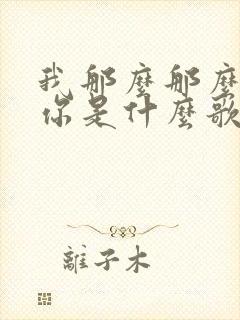 我那麼那麼
你是什麼歌
離子木